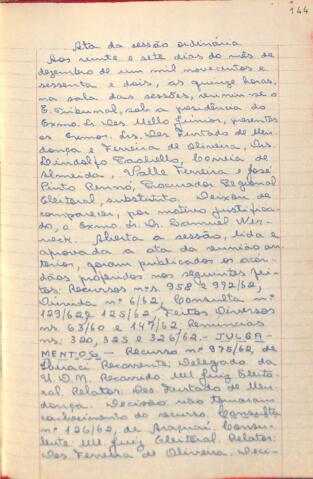 144
Ata da sessão ordinária
Aos vinte e sete dias do mês de
dezembro de um mil novecentos e
sessenta e dois, às quinze horas,
na sala das sessões, reuniu-se o
E. Tribunal, sob a presidência do
Exmo. Sr. Des. Mello Junior, presentes
os Exmos. Srs. Des. Furtado de Men-
donça e Ferreira de Oliveira, Drs.
Lindolfo Paoliello, Correia de
Almeida, Valle Ferreira e José
Pinto Renó, Procurador Regional
Eleitoral, substituto. Deixou de
comparecer, por motivo justifica-
do, o Exmo. Sr. Dr. Samuel Wer-
neck. Aberta a sessão, lida e
aprovada a ata da reunião an-
terior, foram publicados os acór-
dãos proferidos nos seguintes fei-
tos: Recursos nºs. 958 e 972/62,
Dúvida nº 6/62, Consulta nº
129/62 125/62, Feitos Diversos
ns. 63/60 e 147/62, Renúncias
ns: 320, 325 e 326/62. - JULGA-
MENTOS - Recurso nº 975/62, de
Ibiraci. Recorrente: Delegado da
U.D.N. Recorrido: MM. Juiz Eleito-
ral. Relator: Des. Furtado de Men-
donça. Decisão: não tomaram
conhecimento do recurso. Consulta
nº 126/62, de Araçuaí. Consu-
lente: MM. Juiz Eleitoral. Relator:
Des. Ferreira de Oliveira. Deci-